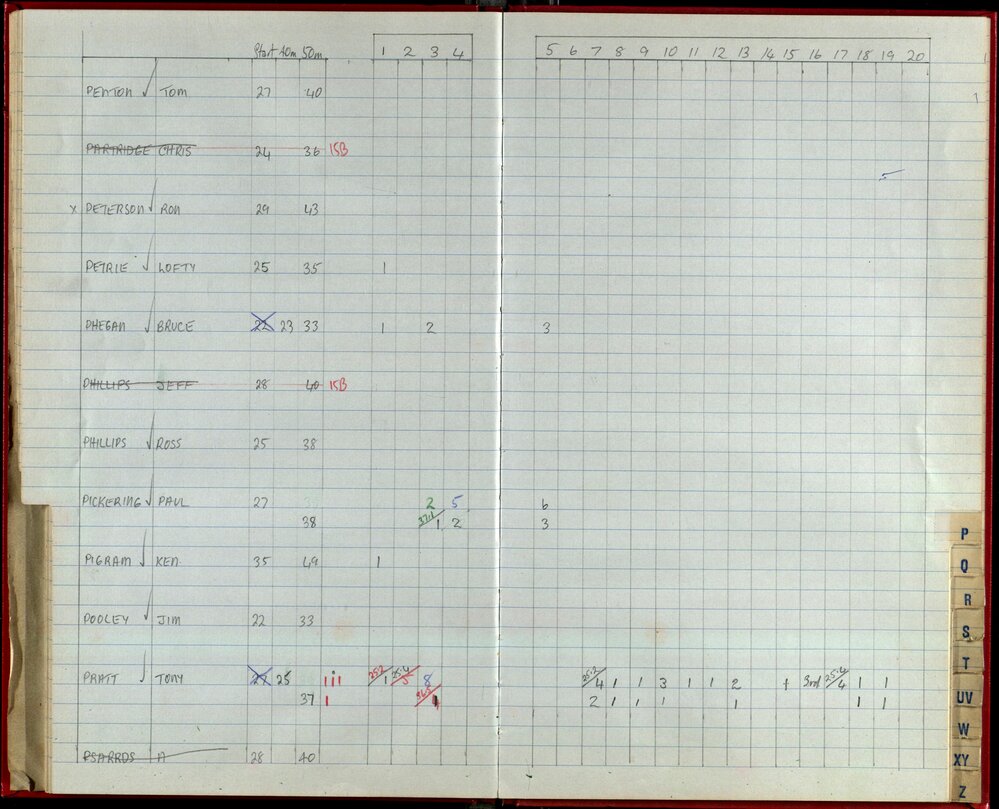 Start 40m 50m 1 2 3 4 5 6 7 8 9 10 11 12 13 14 15 16 17 18 19 20
PENTON TOM 27 40
PARTRIDGE CHRIS 24 36 15B
x PETERSON RON 29 43
PETRIE LOFTY 25 35 1
PHEGAN BRUCE 22 23 33 1 2 3
PHILLIPS JEFF 28 40 15B
PHILLIPS ROSS 25 38
PICKERING PAUL 27 2 5 6
38 37.1 1 2 3
PIGRAM KEN 35 49 1
POOLEY JIM 22 33
PRATT TONY 25 111 25.2 1 25.4 5 8 25.2 4 1 1 3 1 1 2 1 3rd 25.4 4 1 1
37 1 2 1 1 1 1 1 1
A 28 40
P
Q
R
S
T
UV
W
XY
Z